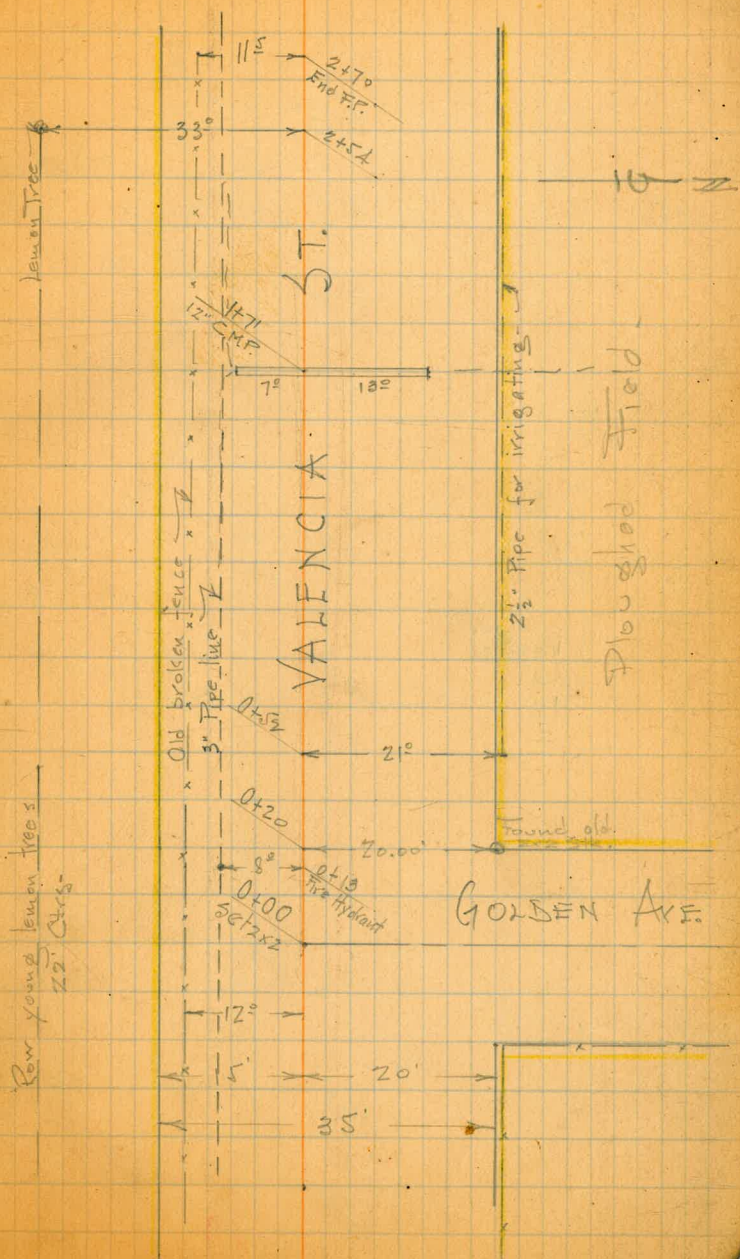 11⁵
2+70
End F.P.
33⁰
2+54
Lemon Tree
N
ST.
1+71
12" C.M.P.
7⁰
18⁰
2½" Pipe for irrigating
Ploughed Field
VALENCIA
Old broken fence
3" Pipe line
0+52
21⁰
0+20
Found old
20.00'
8⁰
0+13
Fire Hydrant
0+00
Set 2x2
GOLDEN AVE.
Row young lemon trees
22' Ctrs.
12⁰
15'
20'
35'